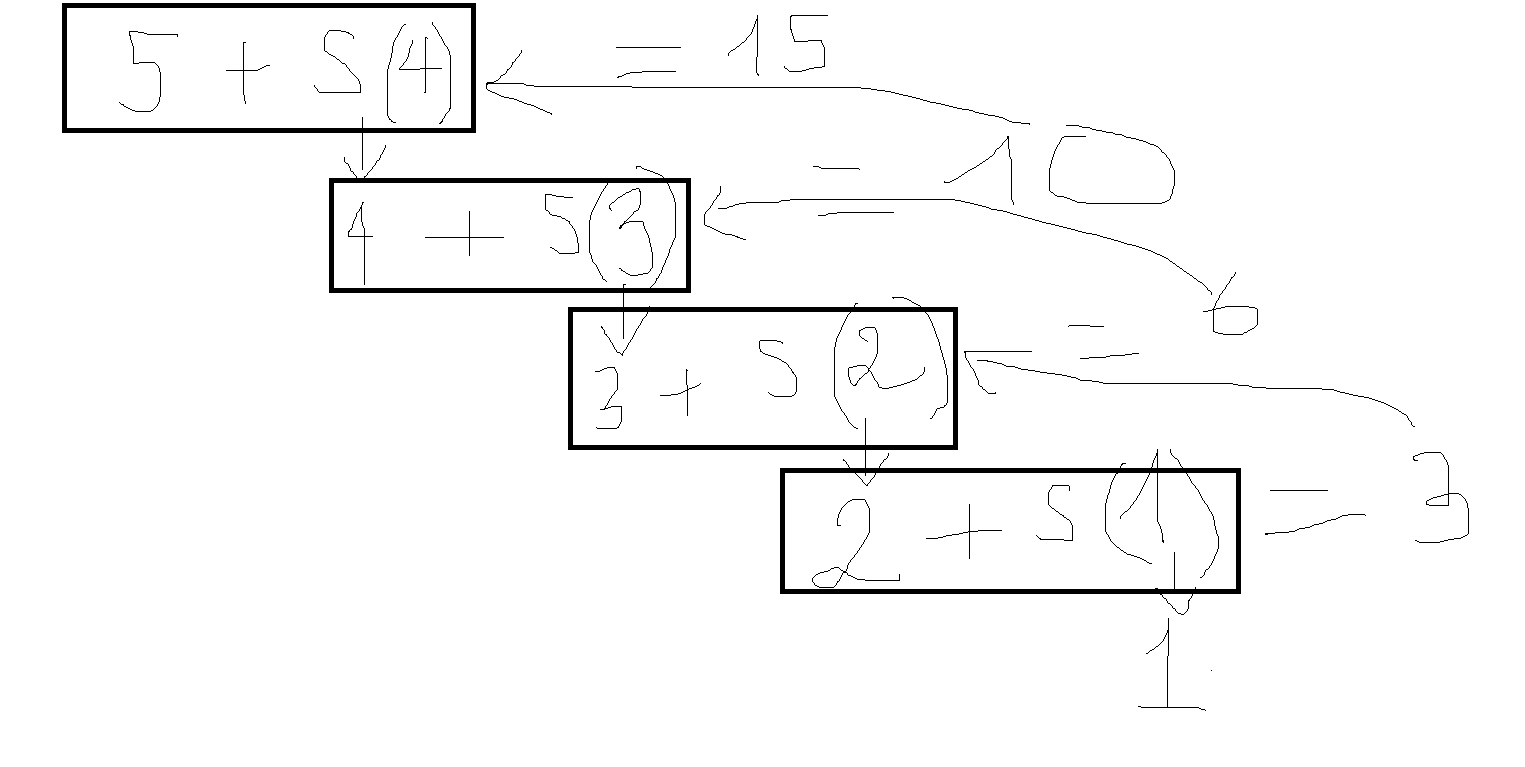 5 + S(4) = 15
4 + S(3) = 10
3 + S(2) = 6
2 + S(1) = 3
1